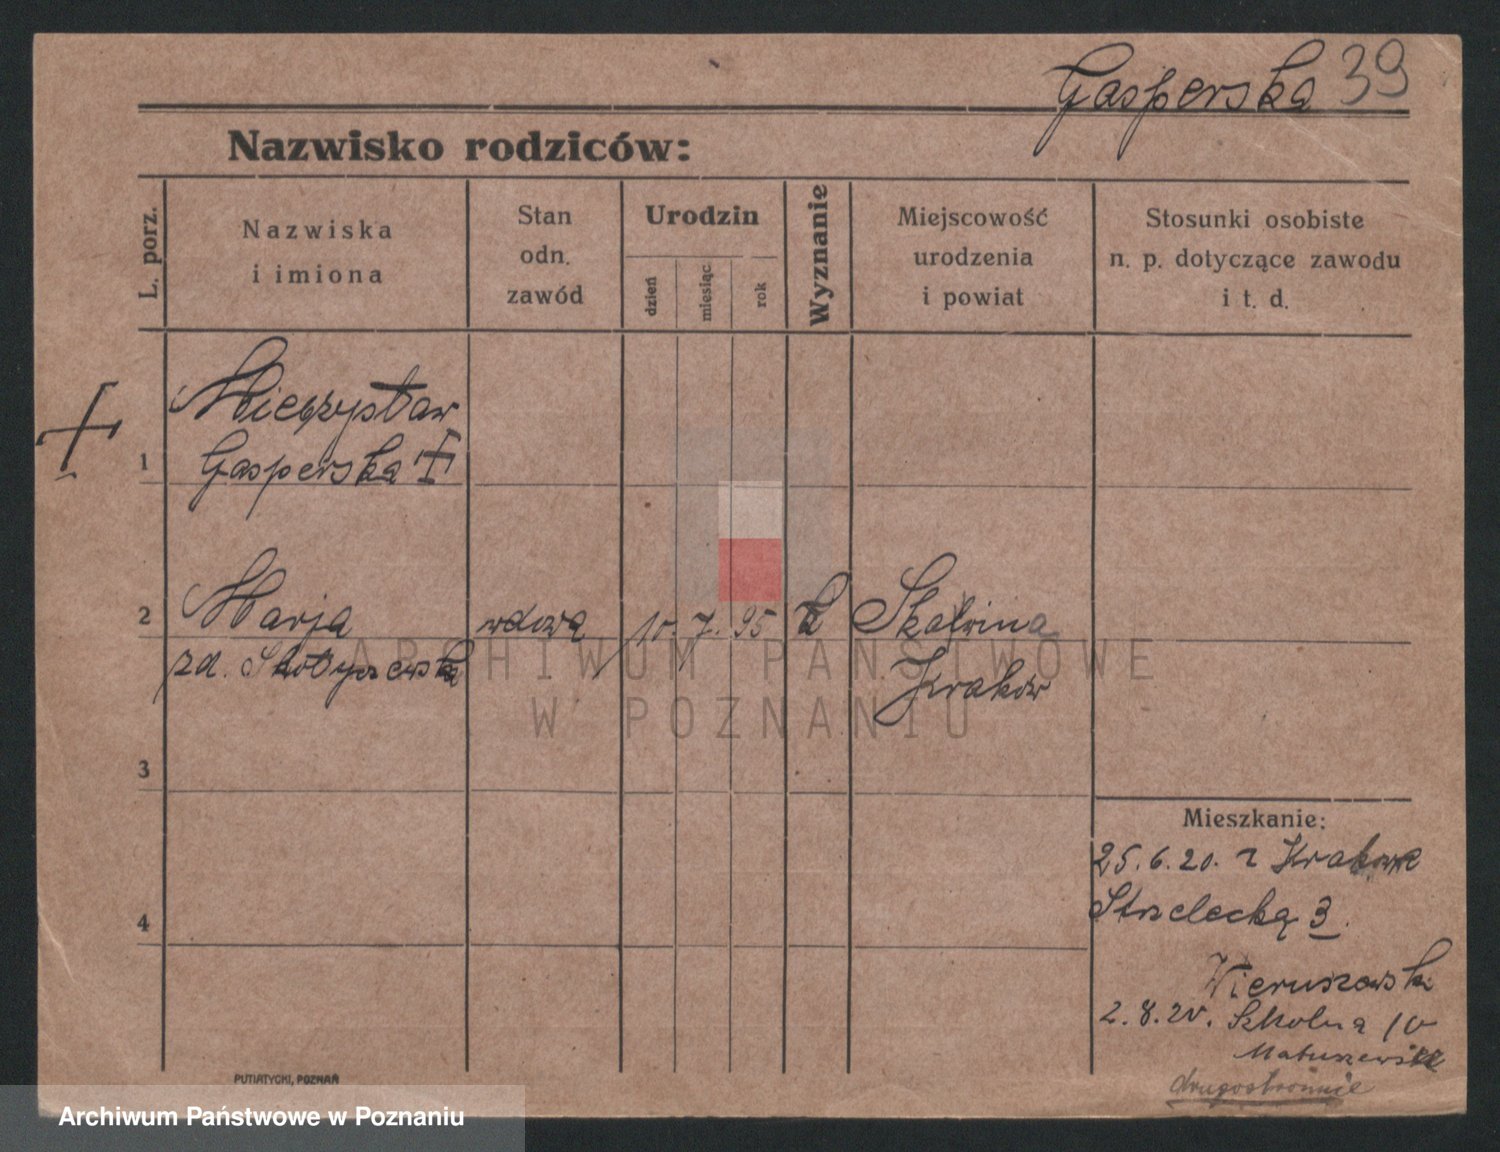 Gasperska 39
Nazwisko rodziców:
L. porz.
Nazwiska
i imiona
Stan
odn.
zawód
Urodzin
dzień
miesiąc
rok
Wyznanie
Miejscowość
urodzenia
i powiat
Stosunki osobiste
n. p. dotyczące zawodu
i t. d.
Mieczysław
1 Gasperska
2 Marja wdowa 10. 7. 95 k Skawina
zd. Skotyszewska Kraków
3
4
Mieszkanie:
25.6.20. z Krakowa
Strzelecka 3.
Wieruszewski
2.8.20. Szkolna 10
Matuszewski
drugostronnie
PUTIATYCKI, POZNAŃ
ARCHIWUM PAŃSTWOWE
W POZNANIU
Archiwum Państwowe w Poznaniu